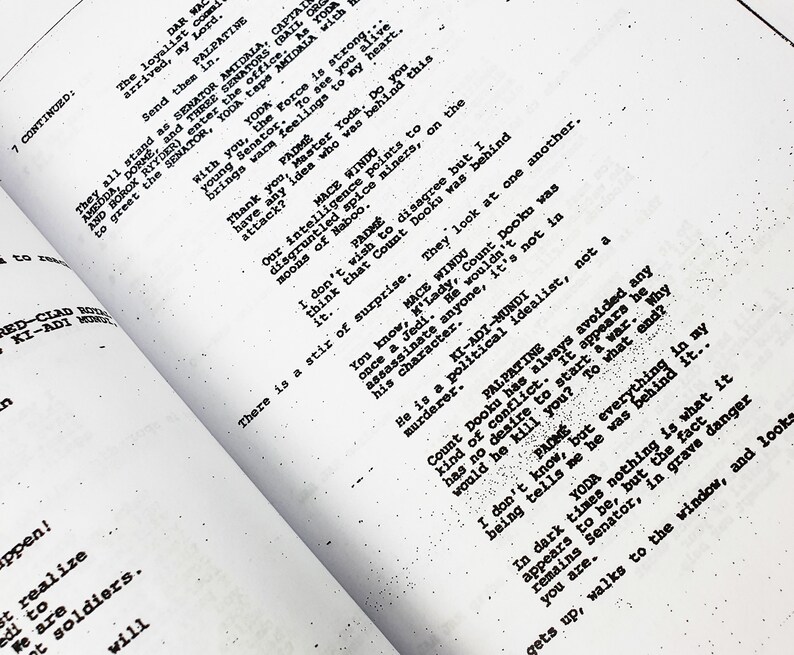 to rea
RED-CLAD ROYAL
KI-ADI MUNDI,
in
appen!
st realize
edi to
We are
ot soldiers.
will
7 CONTINUED:
DAR WAC
The loyalist commit
arrived, my Lord.
PALPATINE
Send them in.
They all stand as SENATOR AMIDALA, CAPTAIN
AMEDDA, DORMÉ, and THREE SENATORS (BAIL ORG
AND HOROX RYYDER) enter the office. As YODA
to greet the SENATOR, YODA taps AMIDALA with h
YODA
With you, the Force is strong...
young Senator. To see you alive
brings warm feelings to my heart.
PADMÉ
Thank you, Master Yoda. Do you
have any idea who was behind this
attack?
MACE WINDU
Our intelligence points to
disgruntled spice miners, on the
moons of Naboo.
PADMÉ
I don't wish to disagree but I
think that Count Dooku was behind
it.
There is a stir of surprise. They look at one another.
MACE WINDU
You know, M'Lady, Count Dooku was
once a Jedi. He wouldn't
assassinate anyone, it's not in
his character.
KI-ADI-MUNDI
He is a political idealist, not a
murderer.
PALPATINE
Count Dooku has always avoided any
kind of conflict. It appears he
has no desire to start a war. Why
would he kill you? To what end?
PADMÉ
I don't know, but everything in my
being tells me he was behind it..
YODA
In dark times nothing is what it
appears to be, but the fact
remains Senator, in grave danger
you are.
gets up, walks to the window, and looks